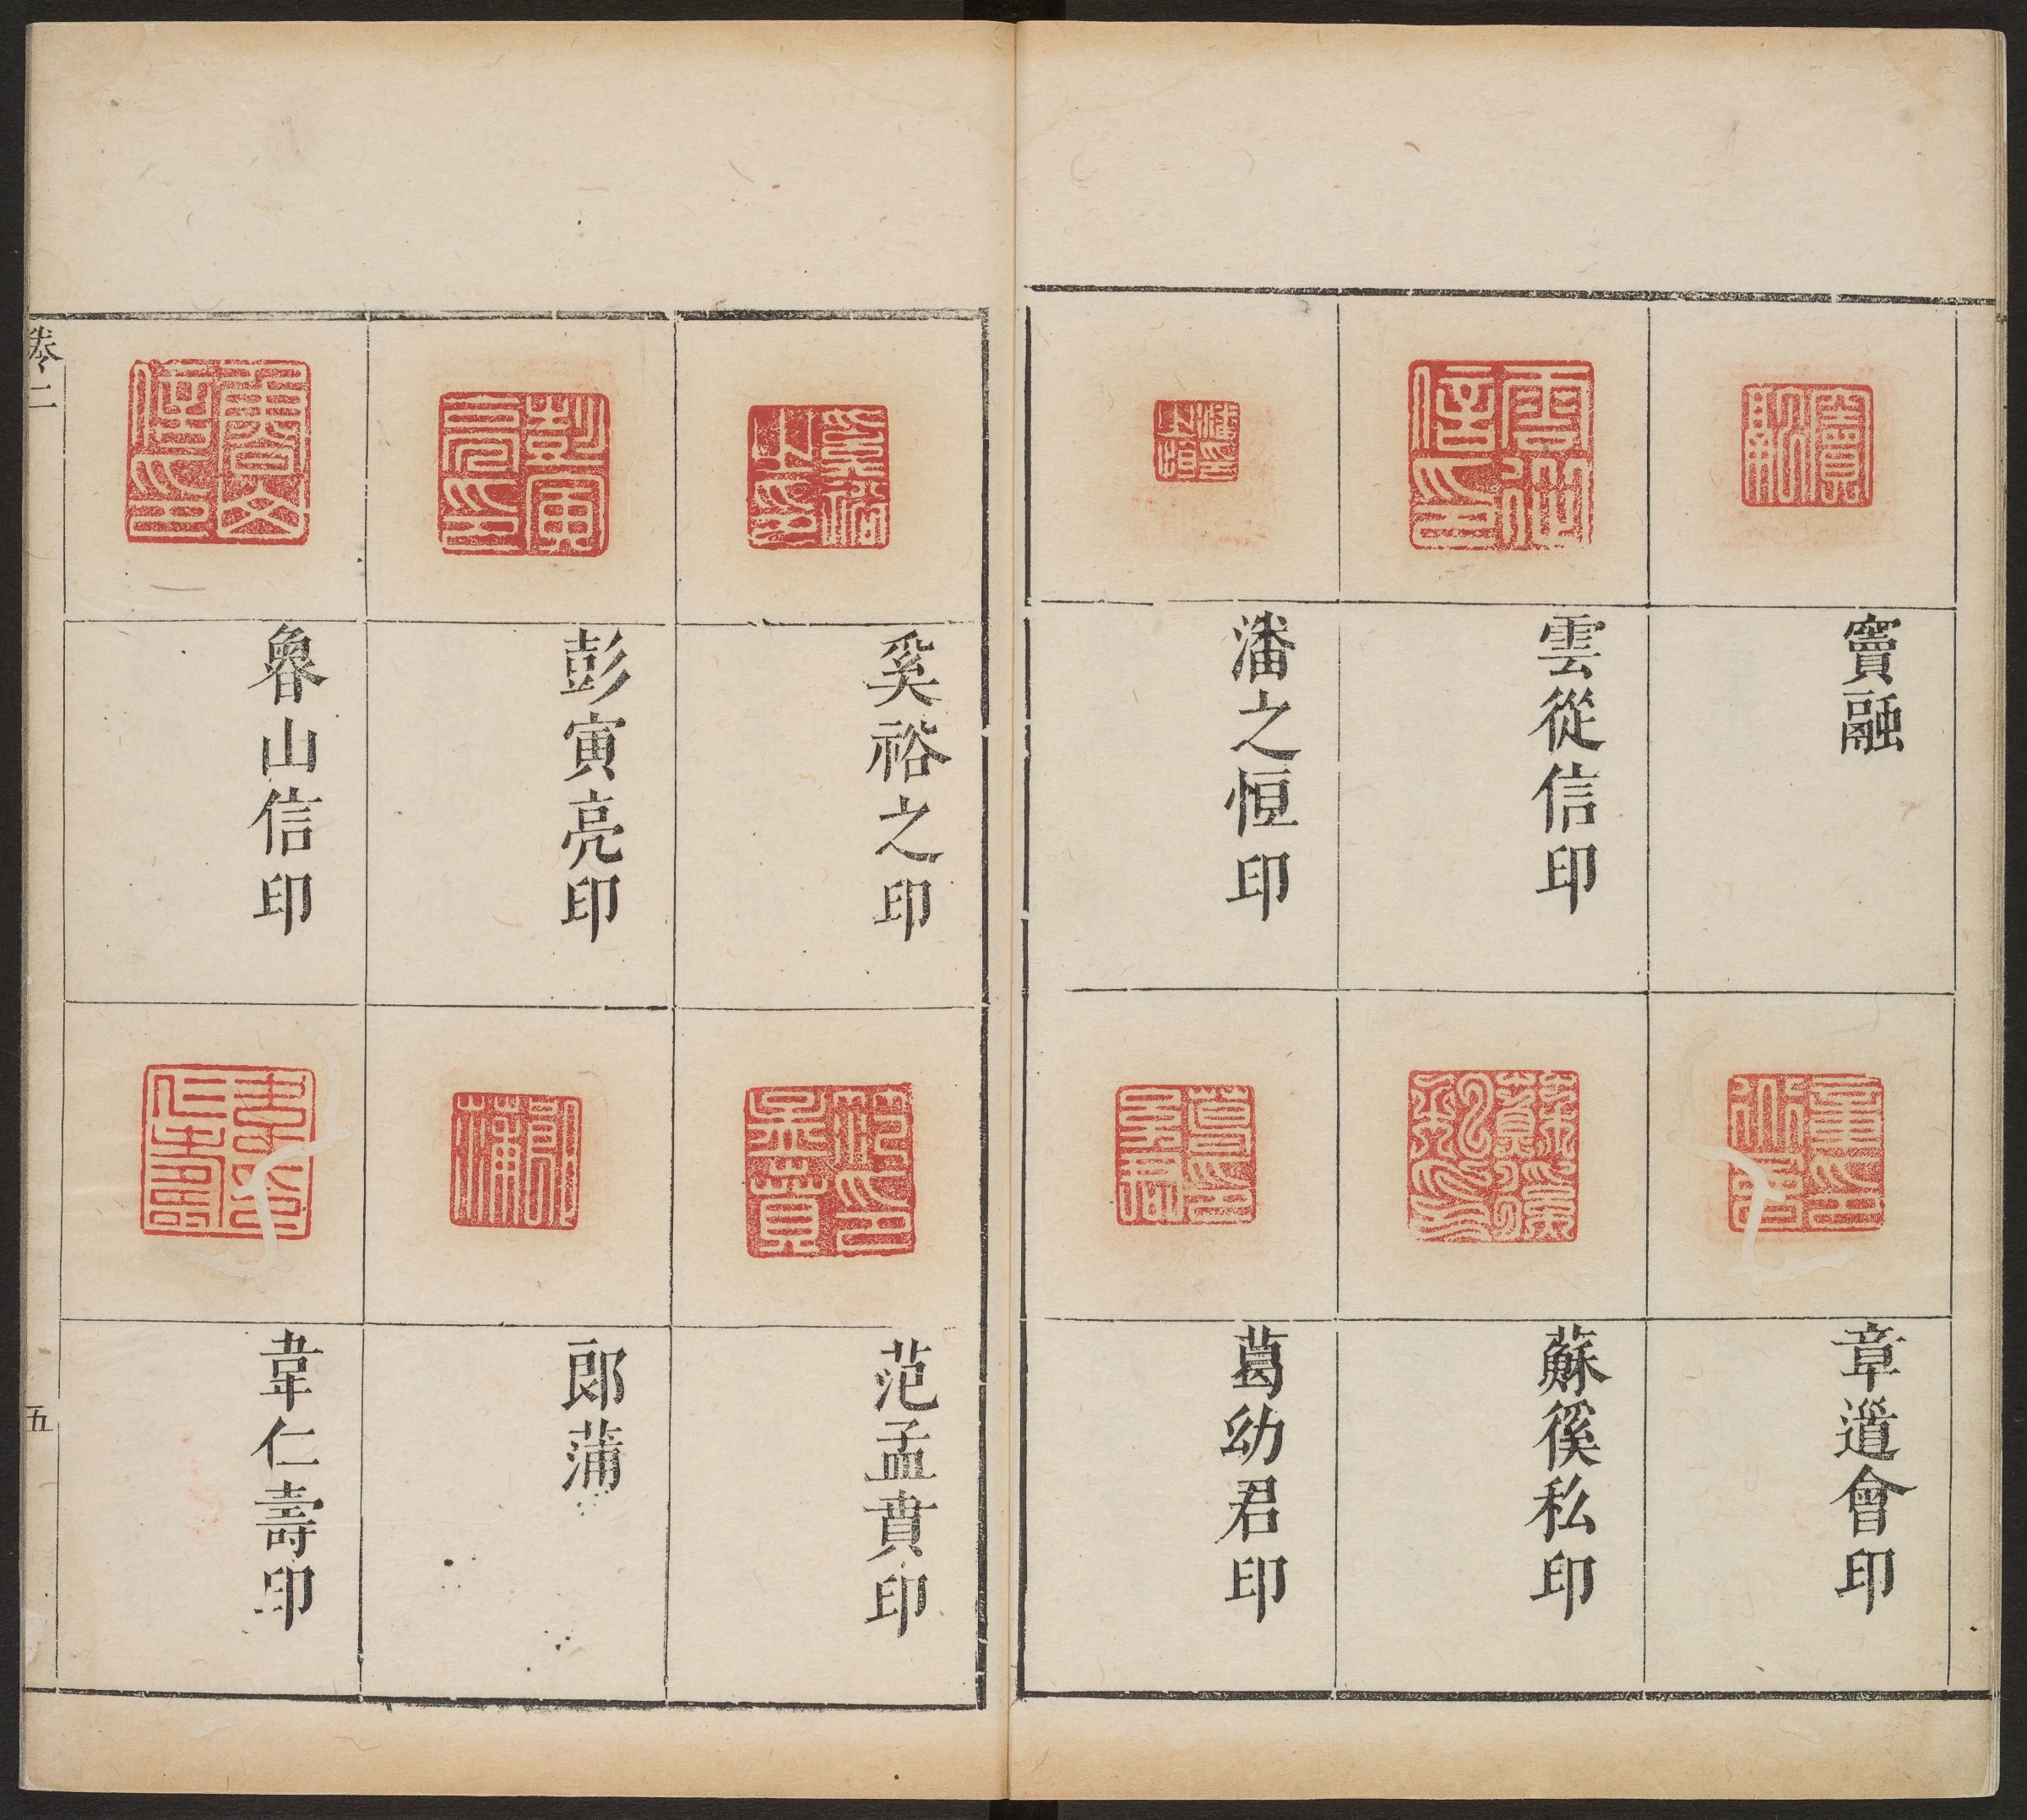 竇融
雲從信印
潘之恒印
章道會印
蘇徯私印
葛幼君印
奚裕之印
彭寅亮印
魯山信印
范孟賁印
郎蒲
韋仁壽印
卷二
五